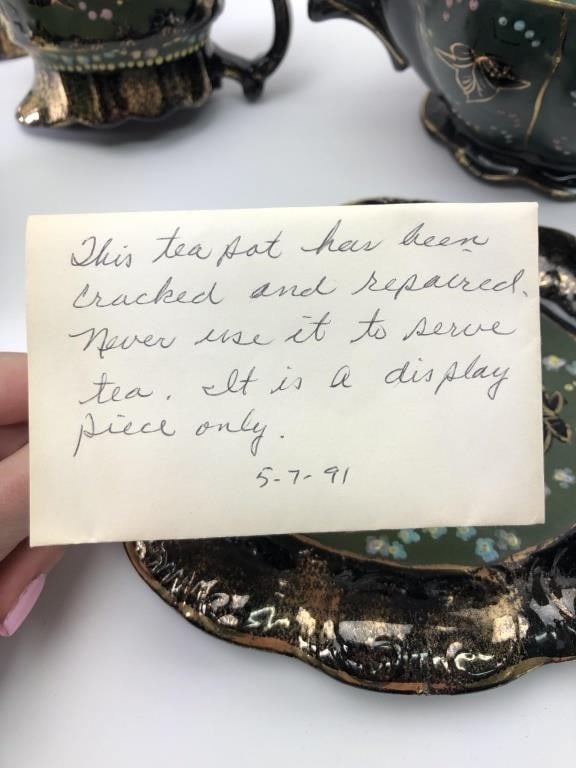 This tea pot has been
cracked and repaired.
Never use it to serve
tea. It is a display
piece only.
5-7-91